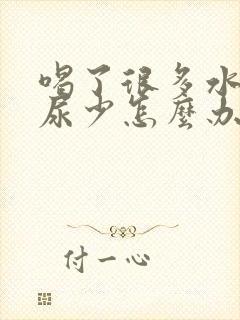 喝了很多水
尿少怎麼办
付一心